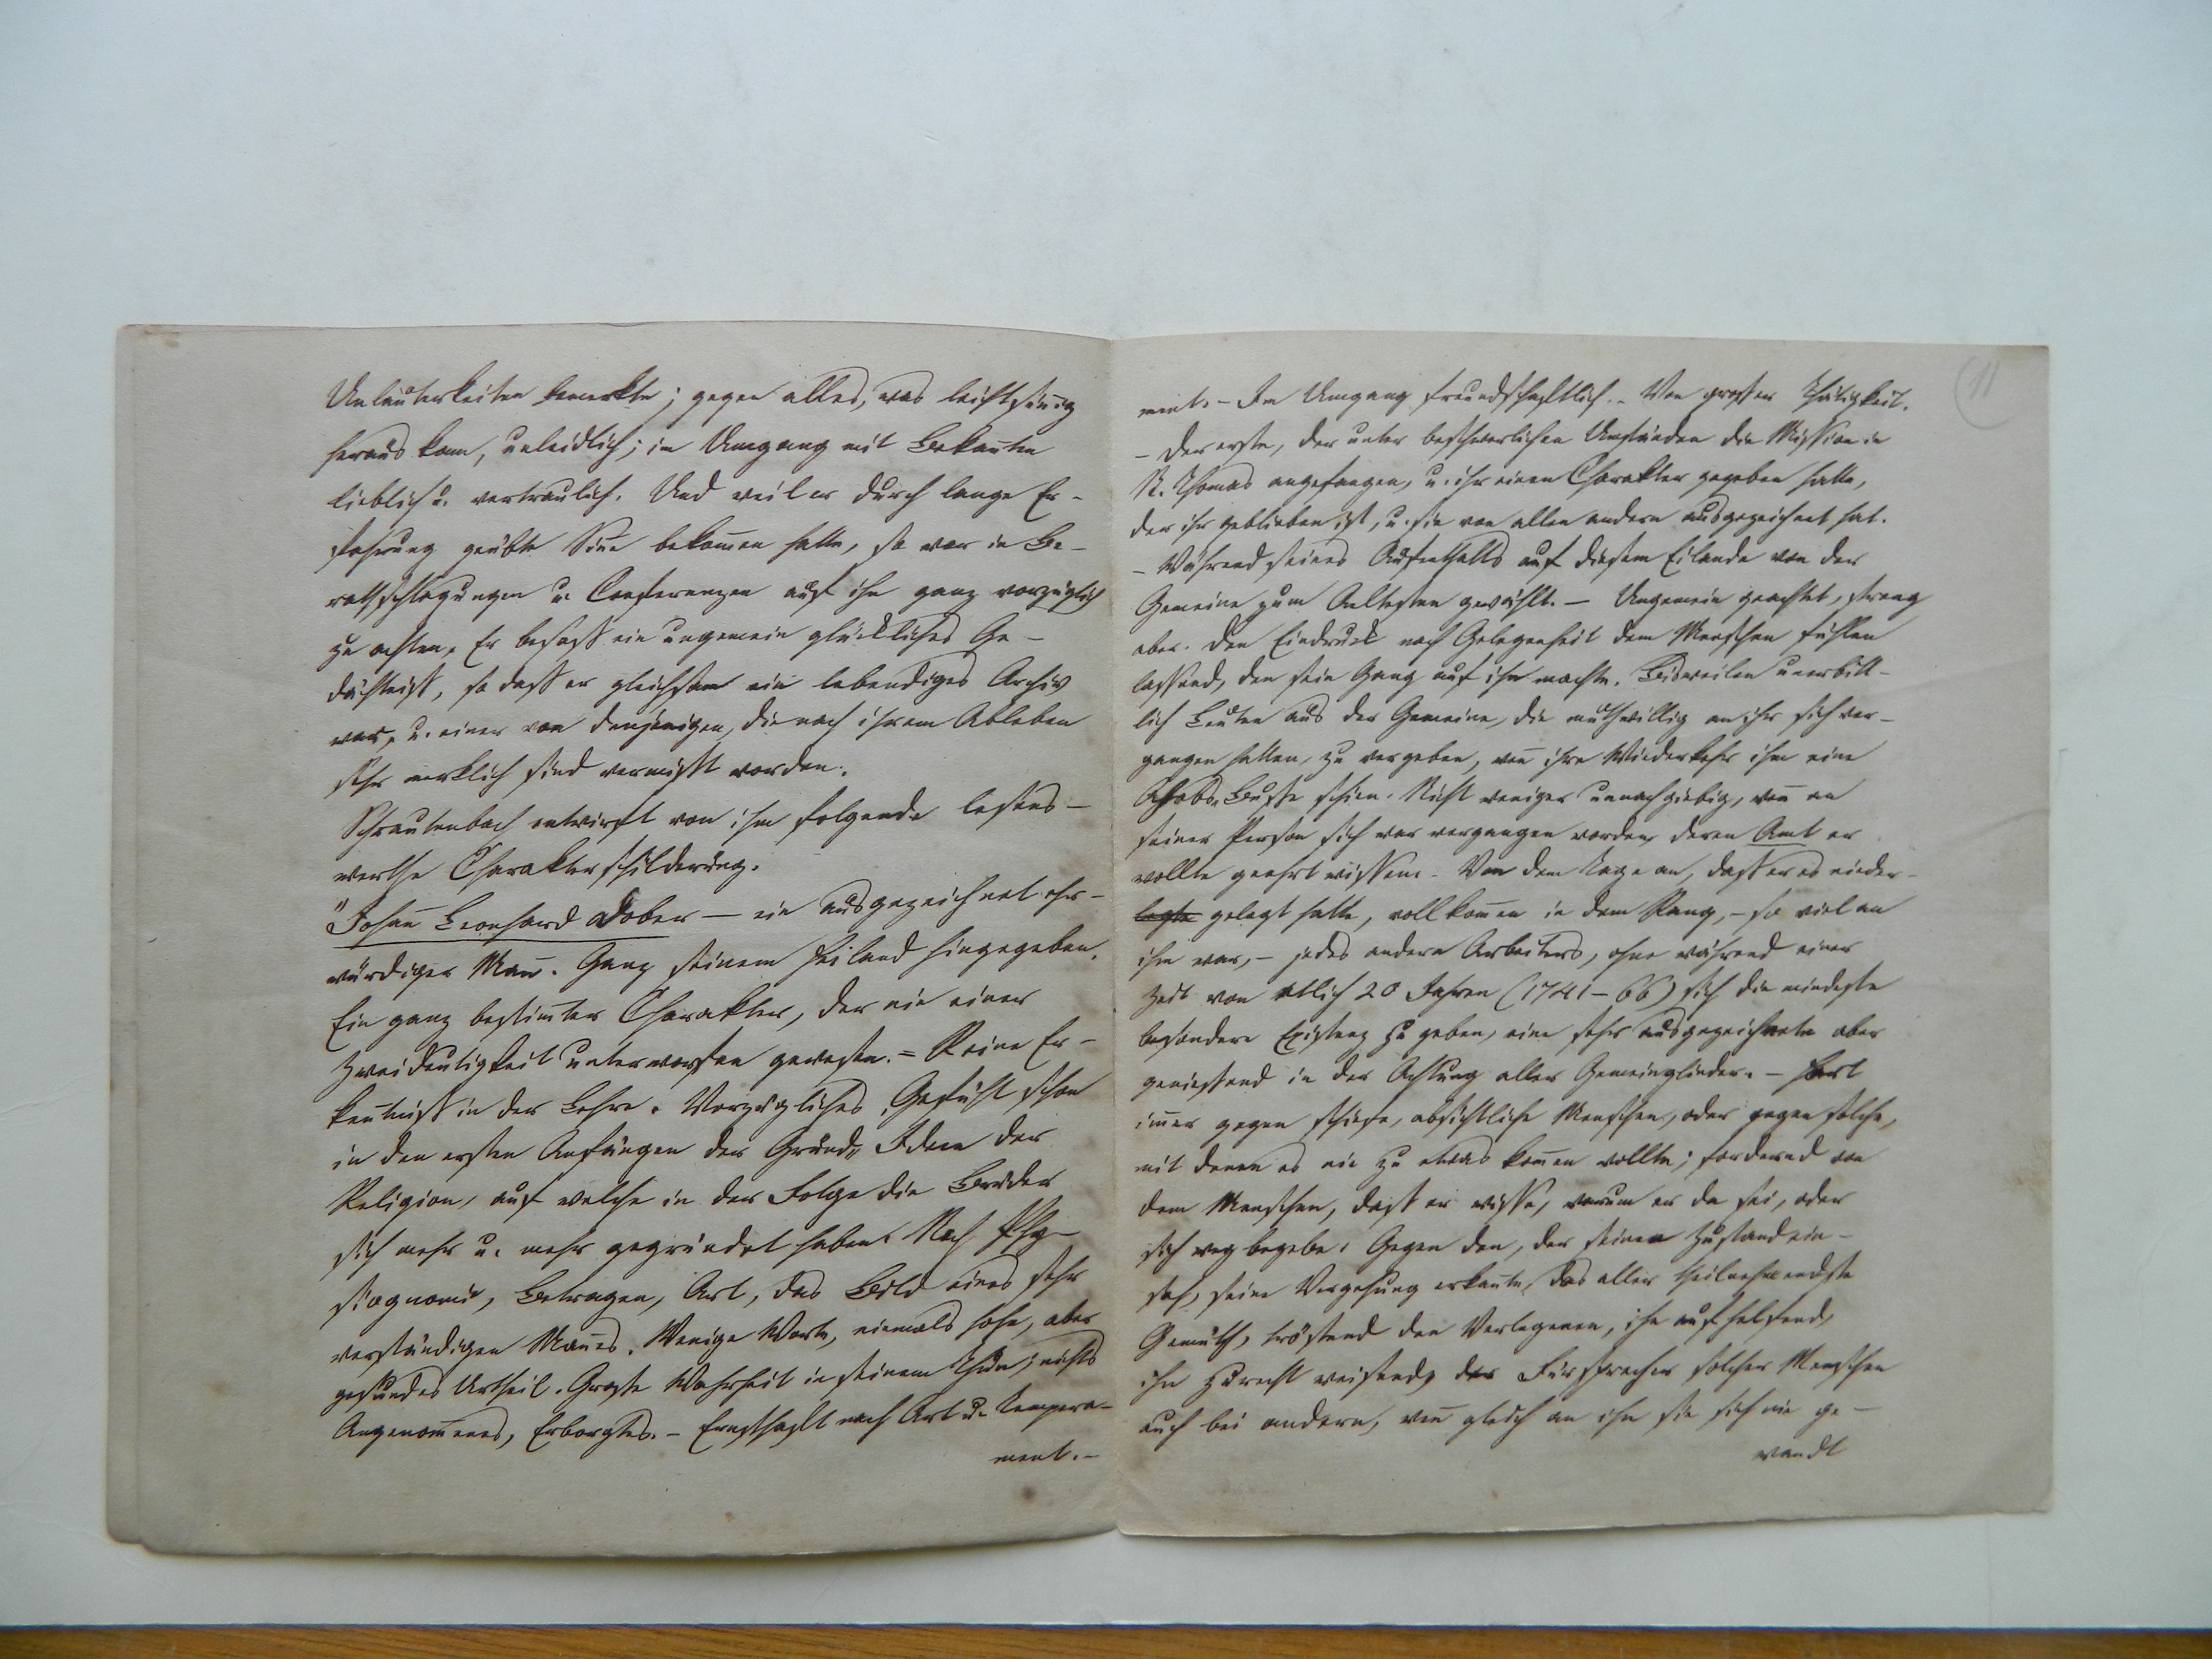 Unlauterkeiten bemerkte; gegen alles, was leichtsin̄ig
heraus kam, unleidlich; im Umgang mit Bekan̄ten
lieblich u. vertraulich. Und weil er durch lange Er-
fahrung geübte Sin̄e bekom̄en hatte, so war in Be-
rathschlagungen u. Conferenzen auf ihn ganz vorzüglich
zu achten. Er besaß ein ungemein glückliches Ge-
dächtniß, so daß er gleichsam ein lebendiges Archiv
war, u. einer von denjenigen, die nach ihrem Ableben
sehr merklich sind vermißt worden.
Schrautenbach entwirft von ihm folgende lesens-
werthe Charakterschilderung.
"Johan̄ Leonhard Dober – ein ausgezeichnet ehr-
würdiger Man̄. Ganz seinem Heiland hingegeben.
Ein ganz bestim̄ter Charakter, der nie einer
Zweideutigkeit unterworfen gewesen. = Reine Er-
ken̄tniß in der Lehre. Vorzügliches Gefühl schon
in den ersten Anfängen der Grund-Ideen der
Religion, auf welche in der Folge die Brüder
sich mehr u. mehr gegründet haben. Nach Phy-
siognomie, Betragen, Art, das Bild eines sehr
verständigen Man̄es. Wenige Worte, niemals hohe, aber
gesundes Urtheil. Große Wahrheit in seinem Thun; nichts
Angenom̄enes, Erborgtes. – Ernsthaft nach Art u. Tempera-
ment. –
11
ment. – Im Umgang freundschaftlich. – Von großer Thätigkeit.
– Der erste, der unter beschwerlichen Umständen die Mission in
St. Thomas angefangen, u. ihr einen Charakter gegeben hatte,
der ihr geblieben ist, u. sie von allen andern ausgezeichnet hat.
– Während seines Aufenthalts auf diesem Eilande von der
Gemeine zum Aeltesten gewählt. – Ungemein geachtet, streng
aber. Den Eindruck nach Gelegenheit dem Menschen fühlen
lassend, den sein Gang auf ihn machte. Bisweilen unerbitt-
lich Leuten aus der Gemeine, die muthwillig an ihr sich ver-
gangen hatten, zu vergeben, wen̄ ihre Wiederkehr ihm eine
Ahabs-Buße schien. Nicht weniger unnachgiebig, wen̄ an
seiner Person sich war vergangen worden, deren Amt er
wollte geehrt wissen. – Von dem Tage an, daß er es nieder-
legte gelegt hatte, vollkom̄en in dem Rang, – so viel an
ihm war, – jedes andern Arbeiters, ohne während einer
Zeit von etlich 20 Jahren (1741–66) sich die mindeste
besondere Existenz zu geben, eine sehr ausgezeichnete aber
genießend in der Achtung aller Gemeinglieder. – Hart
im̄er gegen schiefe, absichtliche Menschen, oder gegen solche,
mit denen es nie zu etwas kom̄en wollte; fordernd von
dem Menschen, daß er wisse, warum er da sei, oder
sich weg begebe. Gegen den, der seinen Zustand ein-
sah, seine Vergehung erkan̄te, das aller theilnehmendste
Gemüth, tröstend den Verlegenen, ihm aufhelfend,
ihn zurecht weisend, der Fürsprecher solcher Menschen
auch bei andern, wen̄ gleich an ihn sie sich nie ge-
wandt